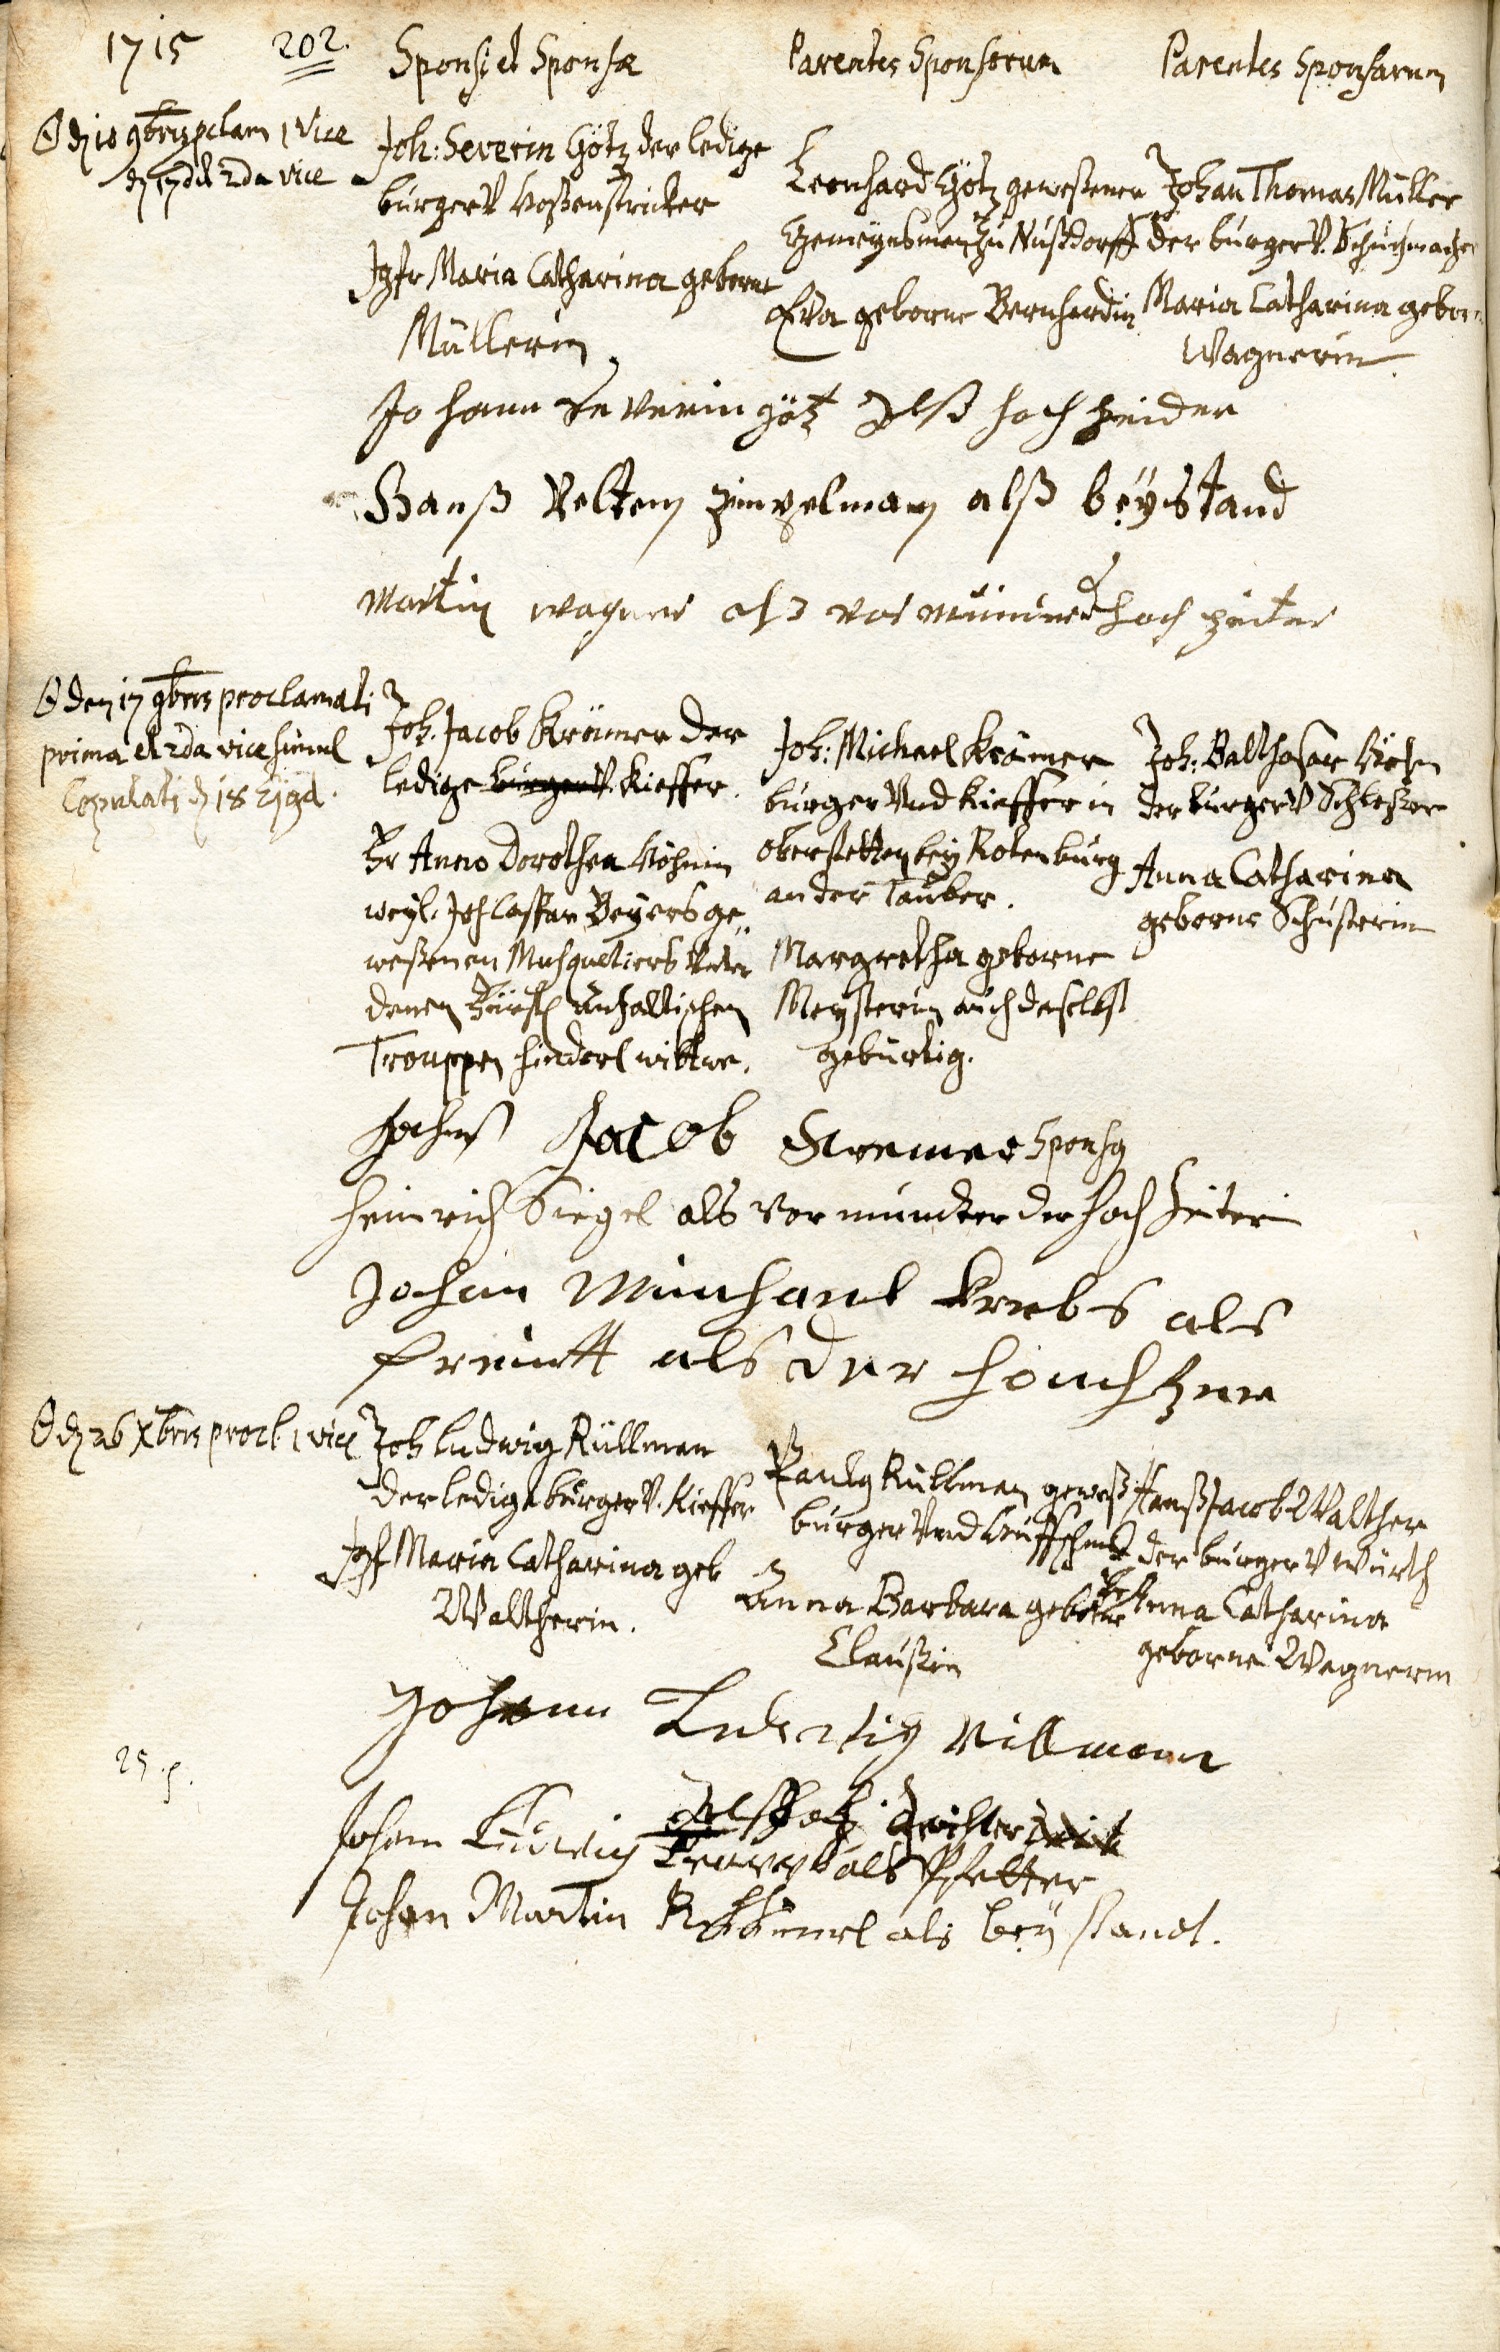 1715 202. Sponsi et Sponsæ Parentes Sponsorum Parentes Sponsarum
☉ dj 10 9bris pclam 1 vice
dj 17 dit 2da vice
Joh: Severin Götz der ledige
burger V Hoßenstricker
Jgfr Maria Catharina geborne
Müllerin
Leonhard Götz geweßener
Gemeynsman zu Nußdorff
Eva geborne Bernhardin
Johan Thomas Müller
der burger V. Schuhmacher
Maria Catharina gebor
Wagnerin
Johann Severin götz Alß hoch zeider
Hanß Velten alß beystand
Martin wagner als vor münder hoch zeiter
☉ den 17 9bris proclamati
prima et 2da vice simul
Copulati dj 18 Ejsd.
Joh. Jacob Krämer der
ledige burger V. Kieffer.
Fr Anna Dorothea
weyl. Joh Caspar Beyers ge„
weßenen Musquetiers Unter
denen Fürstl Anhaltischen
Trouppen hinderl wittwe.
Joh: Michael Krämer
burger Vnd Kieffer in
oberstetten bey Rotenburg
an der Tauber.
Margretha geborne
Meysterin auch daselbst
gebürtig.
Joh: Balthasar
der burger V Schloßer
Anna Catharina
geborne Schusterin
Johans Jacob Kremer Sponsg
Heinrich Siegel als Vormunder der hoch Zeiterin
Johan Michael Krebs als
freintt als der
☉ dj 26 Xbris procl 1 vice
Joh Ludwig Rüllman
der ledige burger V. Kieffer
Jgf Maria Catharina geb
Waltherin.
Paulg Rullman geweß
burger Vnd Huffschmidt
Anna Barbara geborne
Claußin
Hanß Jacob Walther
der burger V Würth
Anna Catharina
geborne Wagnerin
Johann Ludwig Rillmann
Als hochzeiter
Johan Ludwig als Pfetter
25. p.
Johan Martin als beystandt.